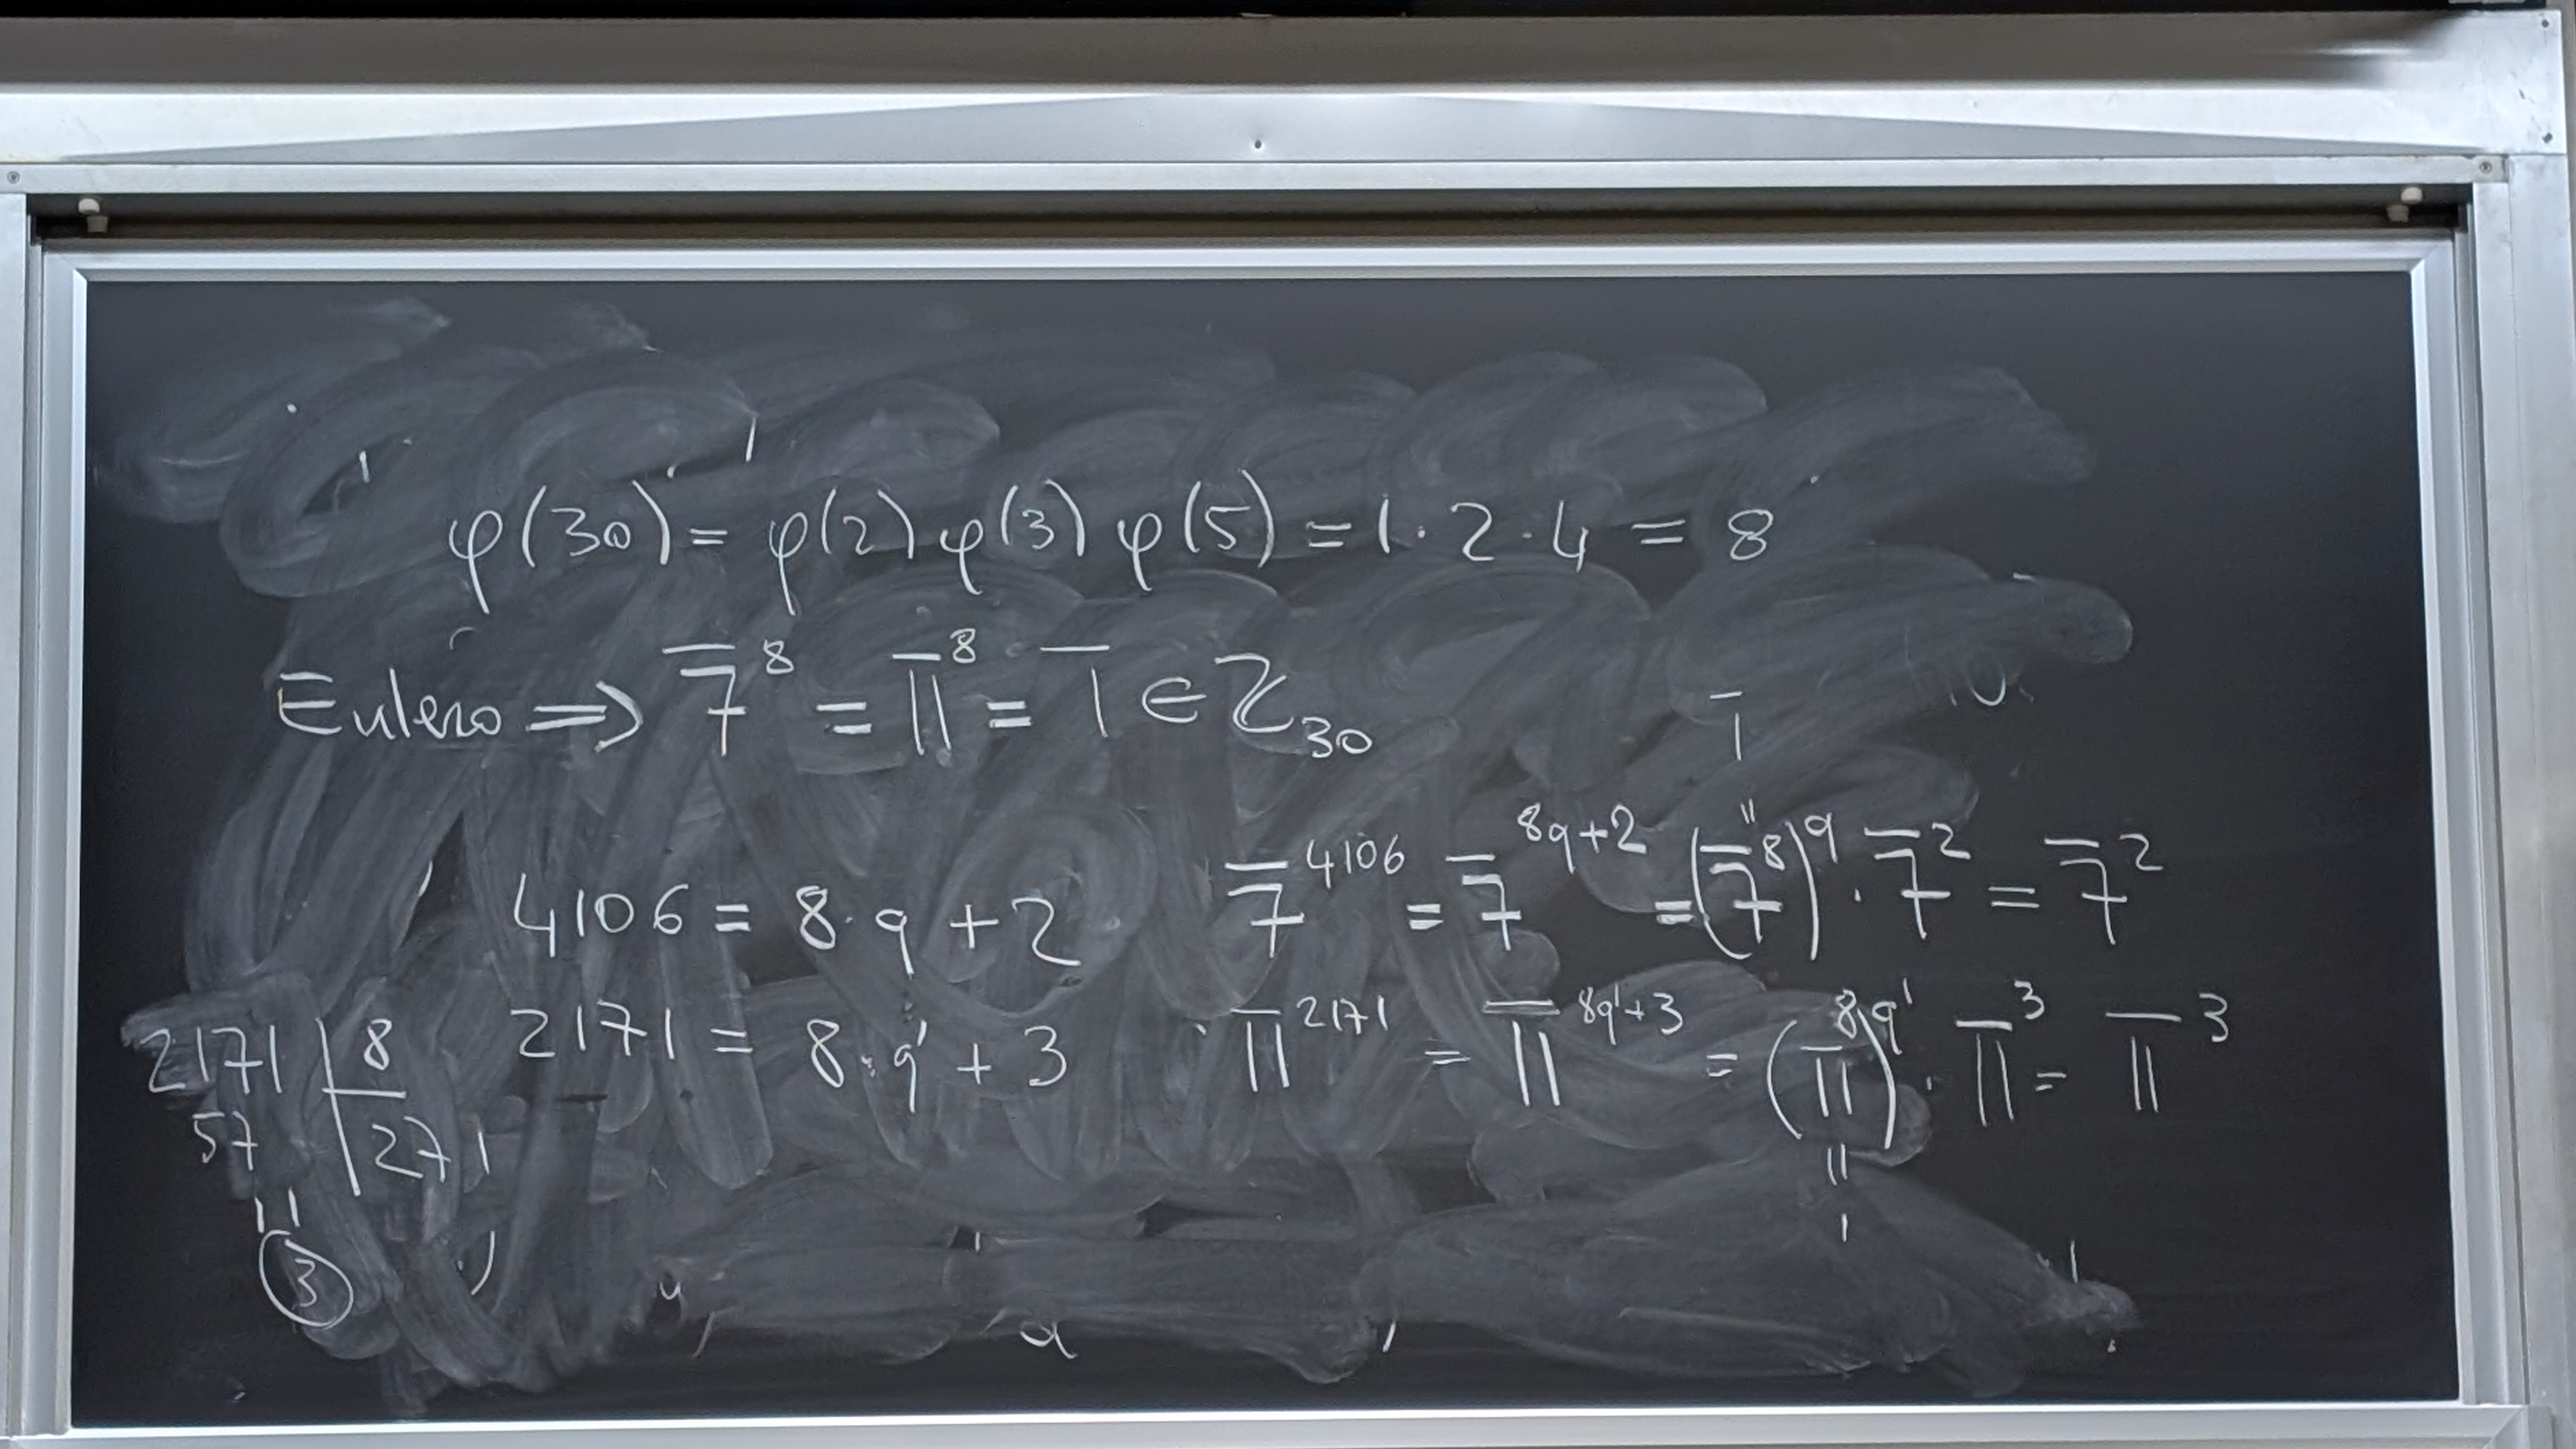 φ(30) = φ(2) φ(3) φ(5) = 1 · 2 · 4 = 8
Eulero ⇒ 7̅⁸ = 1̅1̅⁸ = 1̅ ∈ ℤ₃₀
1̅
"
4106 = 8 · q + 2
7̅⁴¹⁰⁶ = 7̅^(8q+2) = (7̅⁸)^q · 7̅² = 7̅²
2171 = 8 · q' + 3
1̅1̅²¹⁷¹ = 1̅1̅^(8q'+3) = (1̅1̅⁸)^q' · 1̅1̅³ = 1̅1̅³
"
1
2171 | 8
57 | 271
11
3